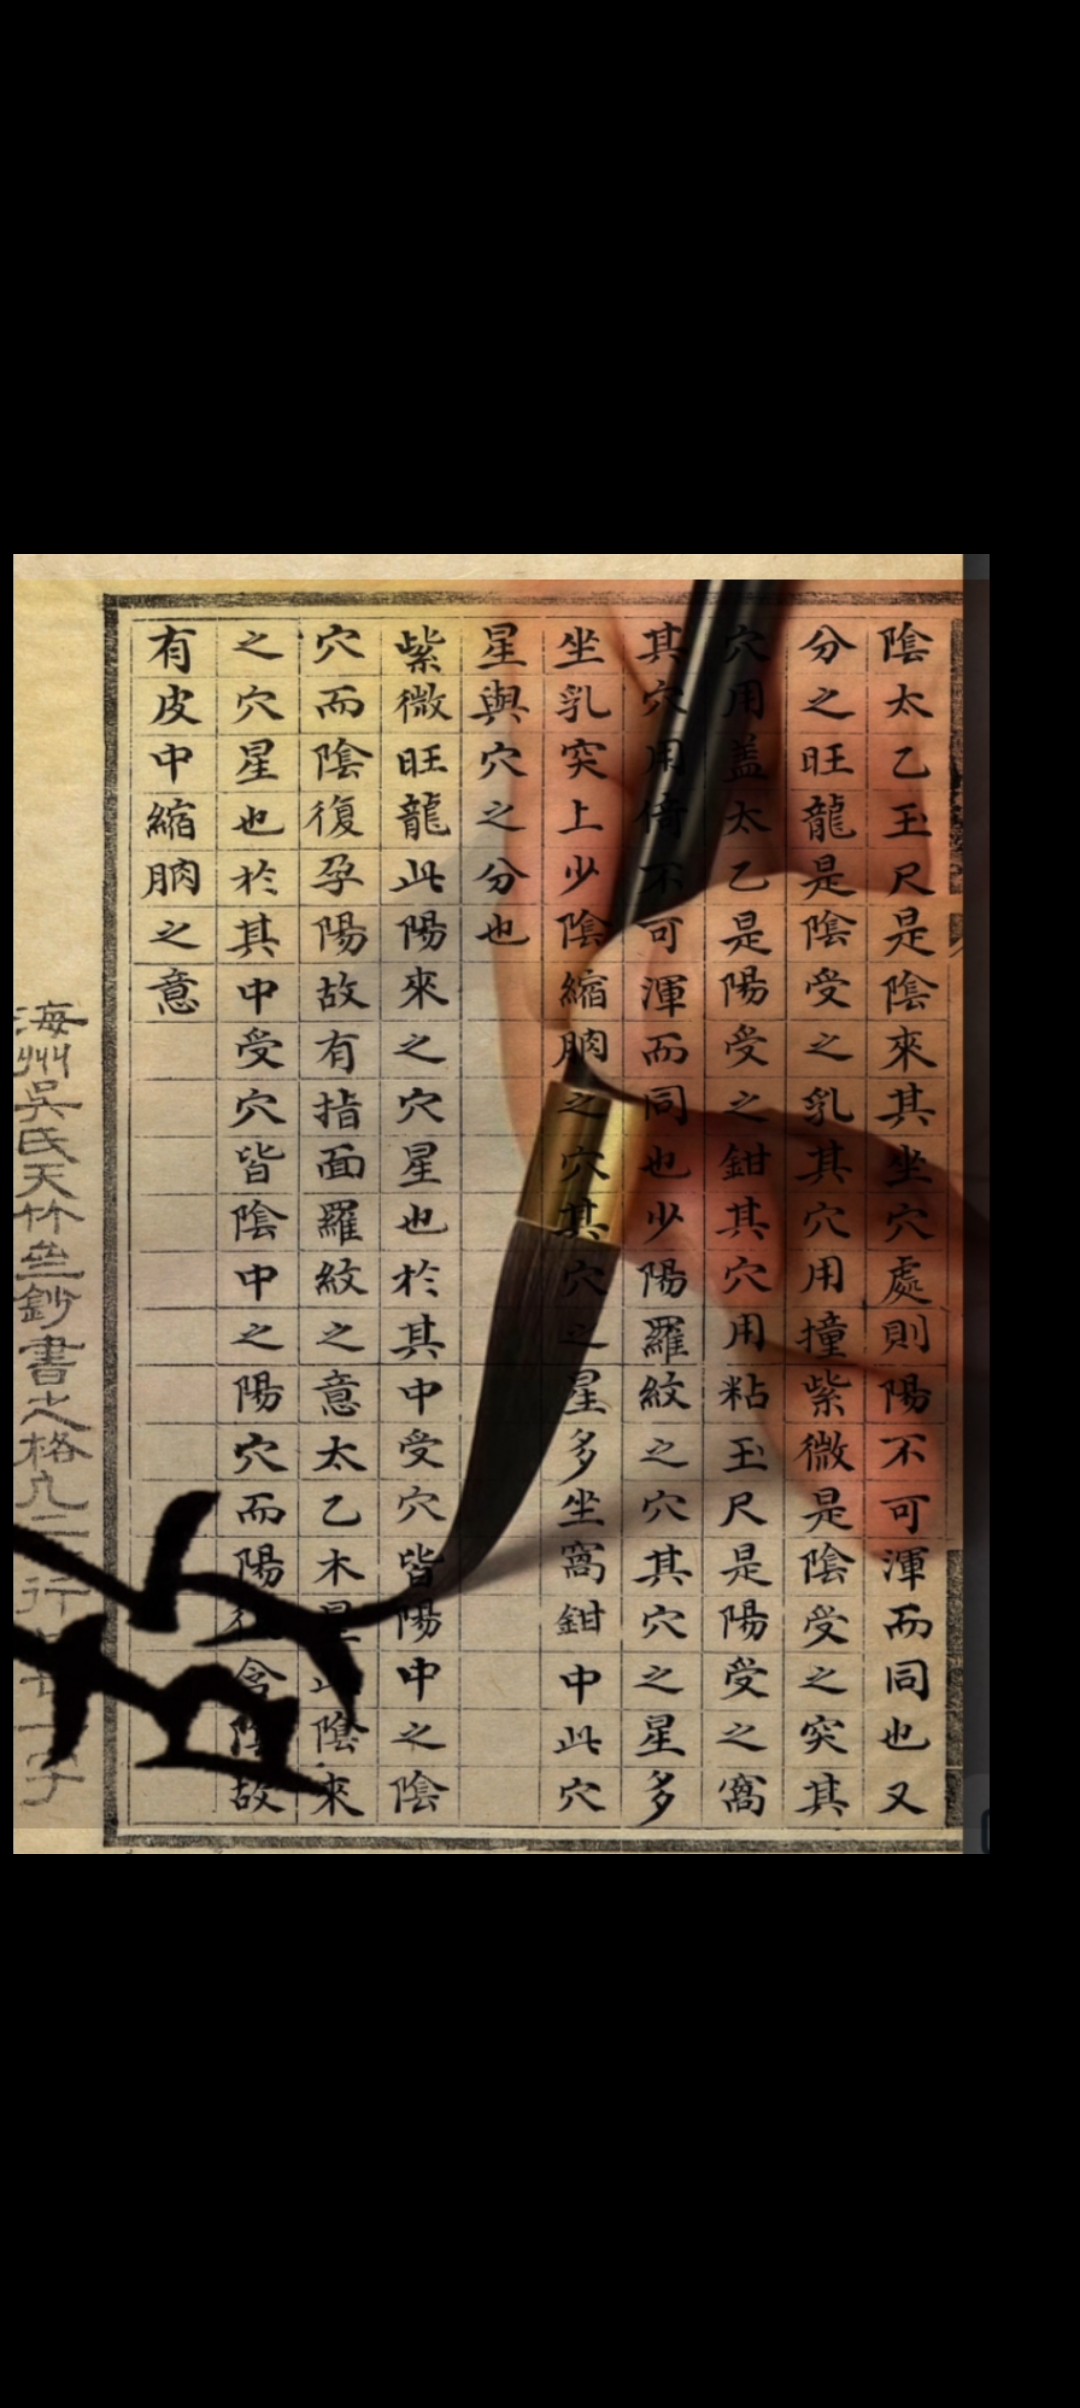 陰太乙玉尺是陰來其坐穴處則陽不可渾而同也又
分之旺龍是陰受之乳其穴用撞紫微是陰受之突其
穴用盖太乙是陽受之鉗其穴用粘玉尺是陽受之窩
其穴用倚不可渾而同也少陽羅紋之穴其穴之星多
坐乳突上少陰縮朒之穴其穴之星多坐窩鉗中此穴
星與穴之分也
紫微旺龍此陽來之穴星也於其中受穴皆陽中之陰
穴而陰復孕陽故有指面羅紋之意太乙木星此陰來
之穴星也於其中受穴皆陰中之陽穴而陽含陰故
有皮中縮朒之意
海州吳氏天竹鈔書之格九二行